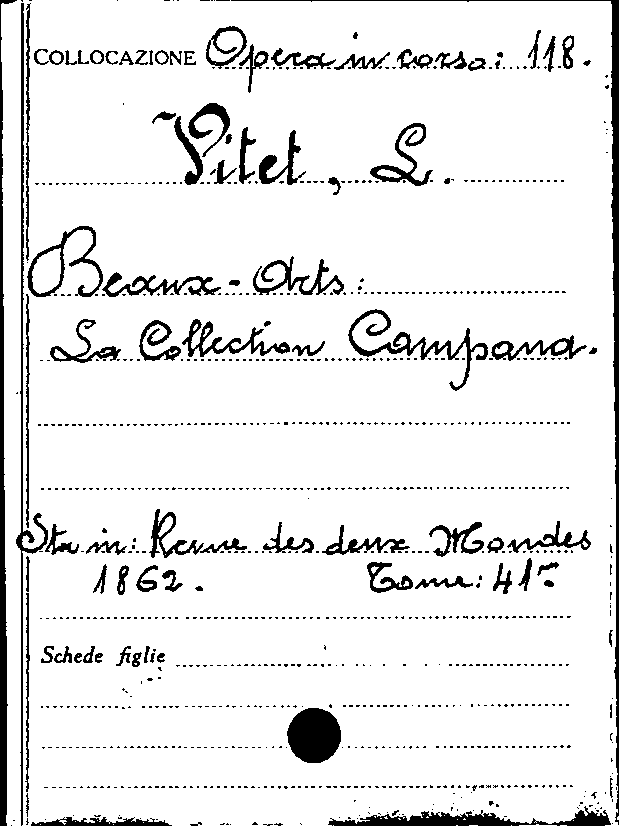 COLLOCAZIONE Opera in corso: 118.
Vitet, L.
Beaux-Arts:
La Collection Campana.
Sta in: Revue des deux Mondes
1862. Tome: 41me
Schede figlie